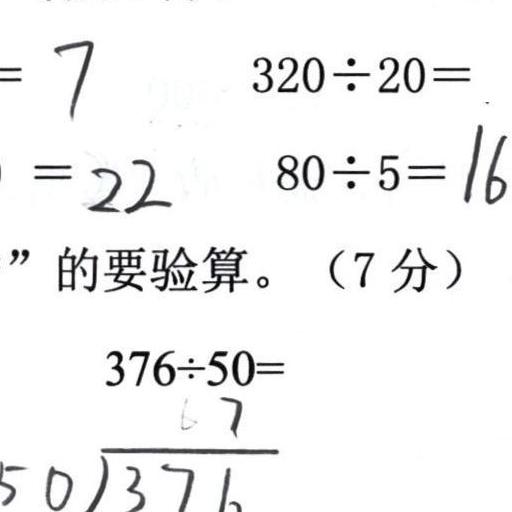 = 7 320÷20=
= 22 80÷5= 16
”的要验算。（7 分）
376÷50=
6 7
50)376